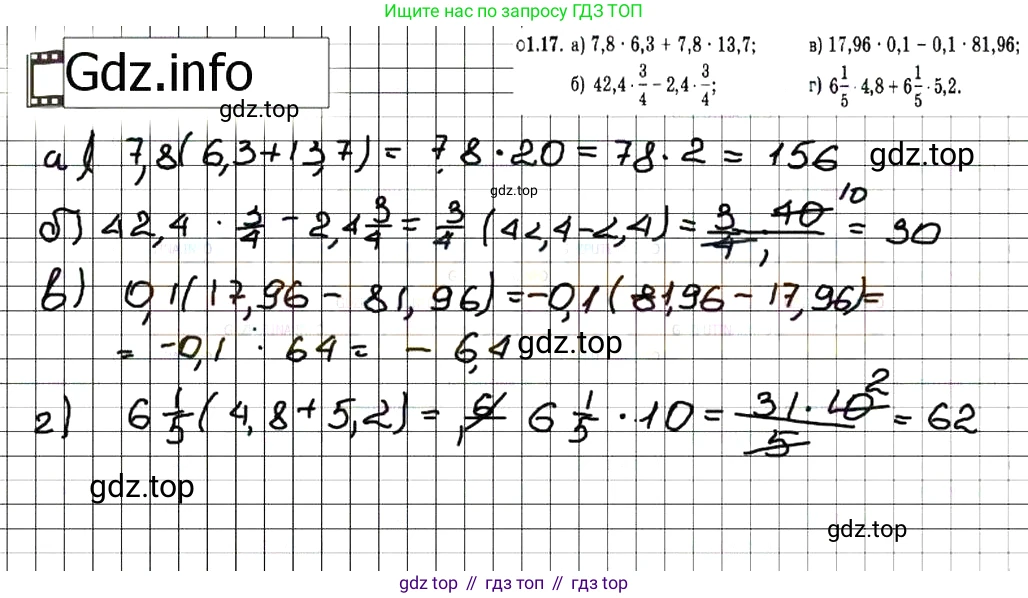 Ищите нас по запросу ГДЗ ТОП
Gdz.info
gdz.top
01.17. а) 7,8 · 6,3 + 7,8 · 13,7; в) 17,96 · 0,1 − 0,1 · 81,96;
б) 42,4 · 3/4 − 2,4 · 3/4; г) 6 1/5 · 4,8 + 6 1/5 · 5,2.
а) 7,8(6,3+13,7) = 7,8 · 20 = 78 · 2 = 156 gdz.top
gdz.top
б) 42,4 · 3/4 − 2,4 3/4 = 3/4 (42,4−2,4) = 3 · 40/4 10 = 30
в) 0,1(17,96 − 81,96) = −0,1(81,96 − 17,96) =
= −0,1 : 64 = − 6,4 gdz.top
г) 6 1/5 (4,8 + 5,2) = 6 1/5 · 10 = 31 · 10/5 2 = 62
gdz.top
gdz.top
gdz top // гдз топ // гдз top